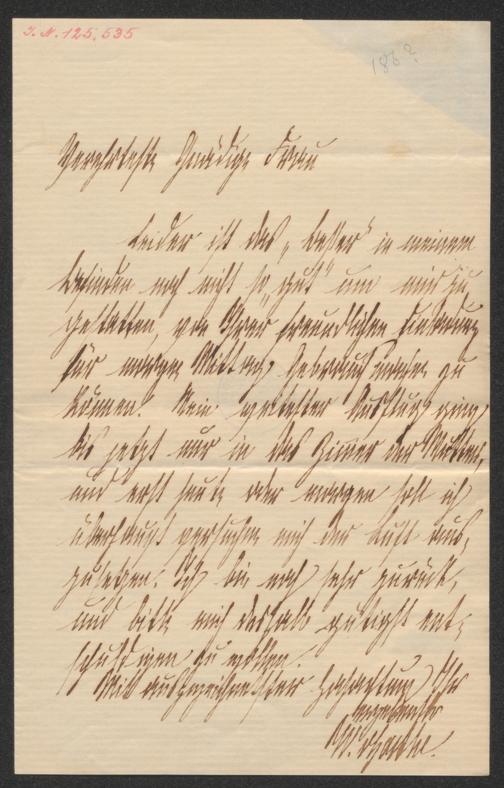 I. N. 125,535
186?
Verehrteste Gnädige Frau
Leider ist das „besser" in meinem
Befinden noch nicht so „gut" um mir zu
gestatten, von Ihrer freundlichen Einladung
für morgen Mittag Gebrauch machen zu
können. Mein weitester Ausflug ging
bis jetzt nur in das Zimmer der Mutter,
und erst heute oder morgen soll ich
überhaupt versuchen mich der Luft aus-
zusetzen. Ich bin noch sehr zurück,
und bitte mich deshalb gütigst ent-
schuldigen zu wollen.
Mit ausgezeichneter Hochachtung Ihr
ergebenster